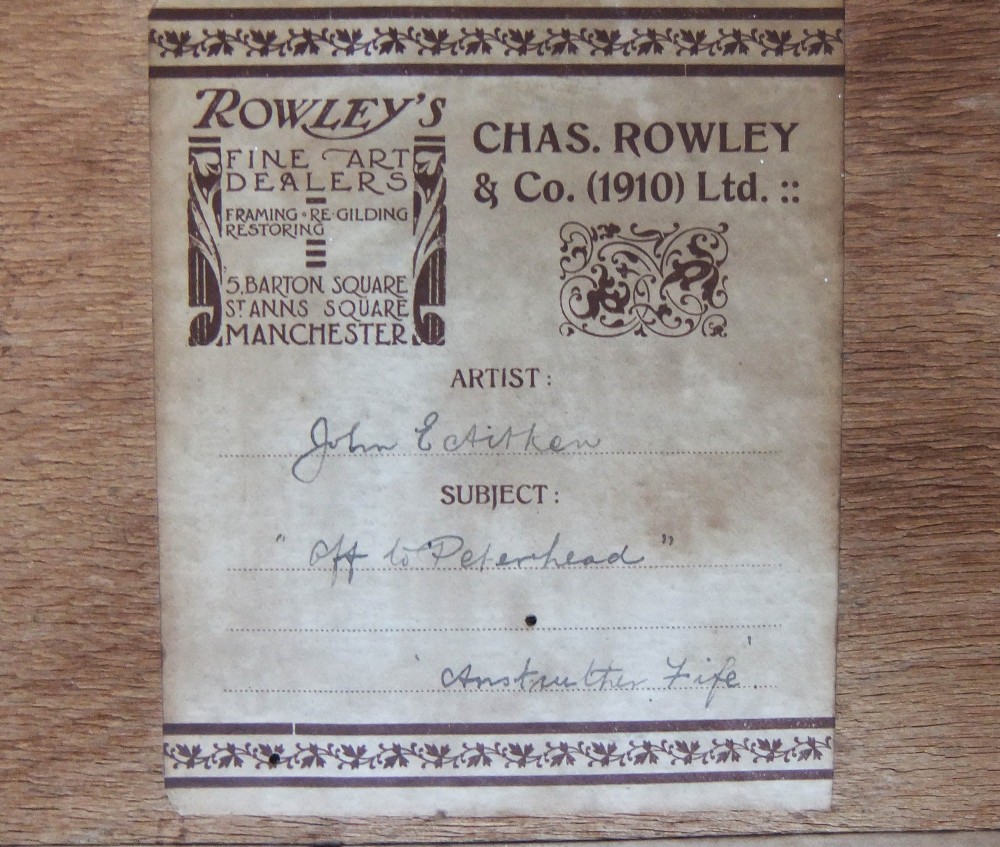 ROWLEY'S
FINE ART
DEALERS
FRAMING · RE-GILDING
RESTORING
5, BARTON SQUARE
ST ANNS SQUARE
MANCHESTER
CHAS. ROWLEY
& Co. (1910) Ltd. ::
ARTIST:
John E Aitken
SUBJECT:
"Off to Peterhead"
'Anstruther Fife'.